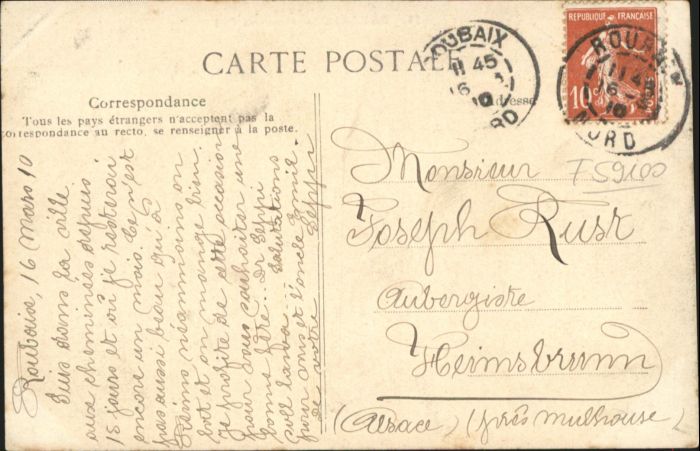 CARTE POSTALE
Correspondance
Tous les pays étrangers n'acceptent pas la
correspondance au recto, se renseigner à la poste.
Adresse
RÉPUBLIQUE FRANÇAISE
10
ROUBAIX
11 45
16
10
NORD
ROUBAIX
11 45
16
10
NORD
Roubaix, 16 mars 10
Suis dans la ville
aux cheminées depuis
15 jours et où je resterai
encore un mais. Ce n'est
pas aussi beau qu'à
Reims néanmoins on
boit et on mange bien.
Je profite de cette occasion
pour vous souhaiter une
bonne fête. Dr Seppi
soll Salutations
pour amis et l'oncle Emile.
de votre Seppi
Monsieur
F59100
Joseph Rust
Aubergiste
Heimsbrunn
(Alsace) (près Mulhouse)